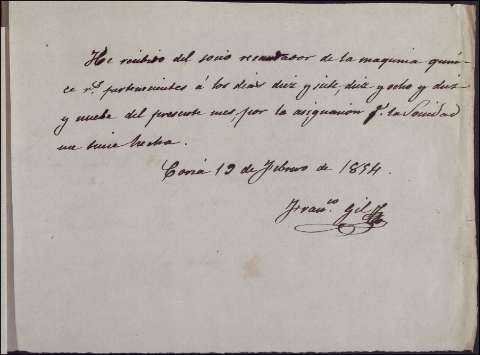 He recibido del socio recaudador de la maquina quin-
ce r.s pertenecientes á los dias diez y siete diez y ocho y diez
y nuebe del presente mes, por la asignacion q.e la Sociedad
me tiene hecha.
Coria 19 de Febrero de 1854.
Fran.co Gil